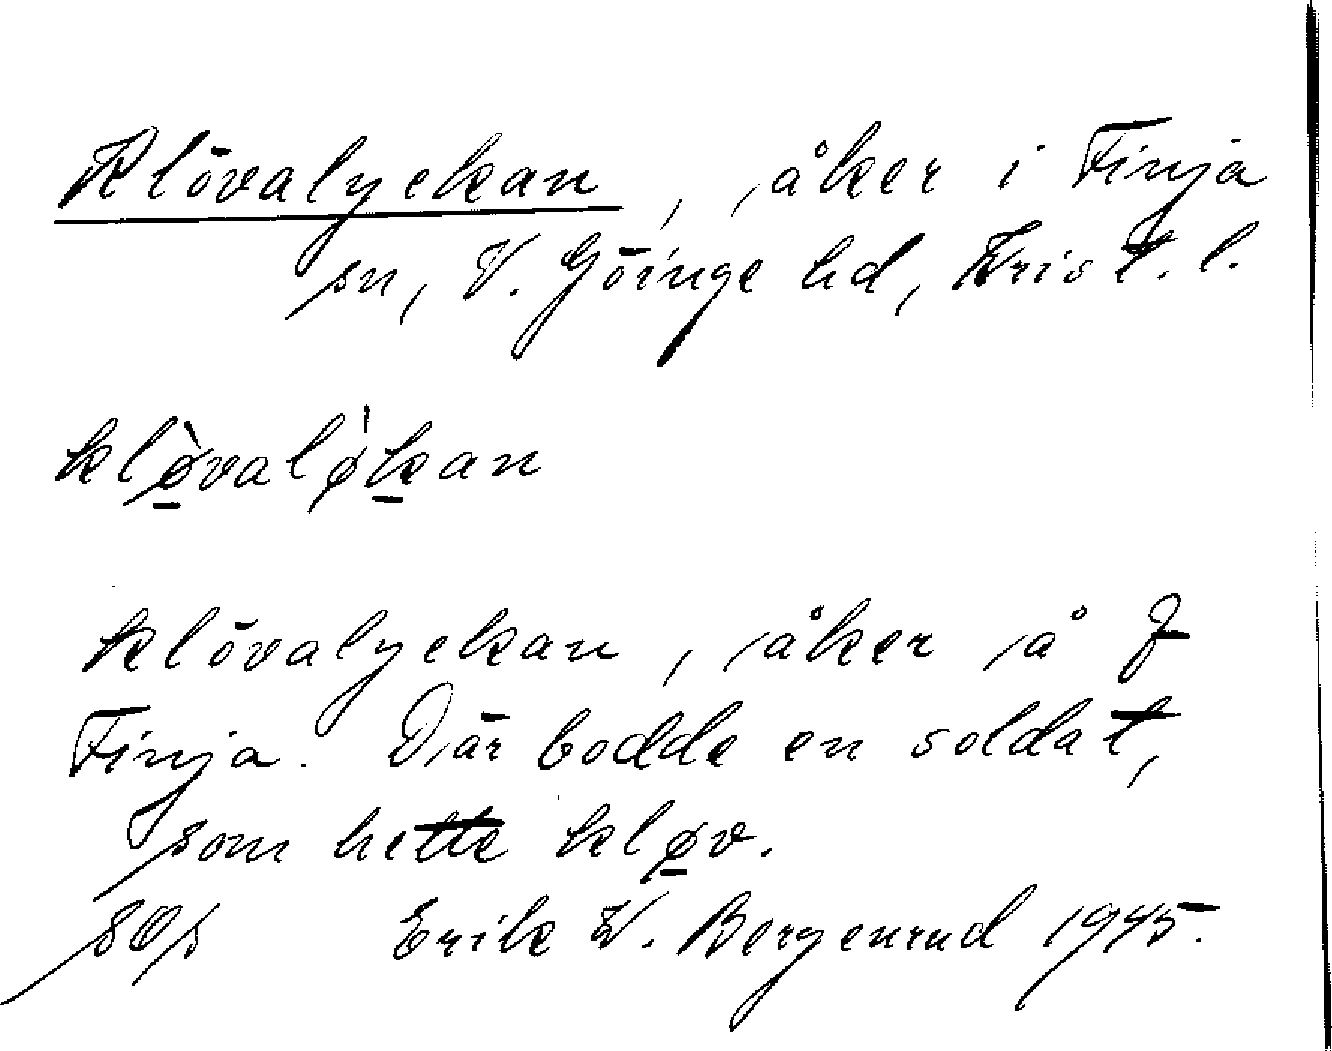 Klövalyckan, åker i Finja
sn, V. Göinge hd, Krist. l.
klø̱̀valø̍ḵan
Klövalyckan, åker å 7
Finja. Där bodde en soldat,
som hette klø̱v.
Erik W. Bergenrud 1945.